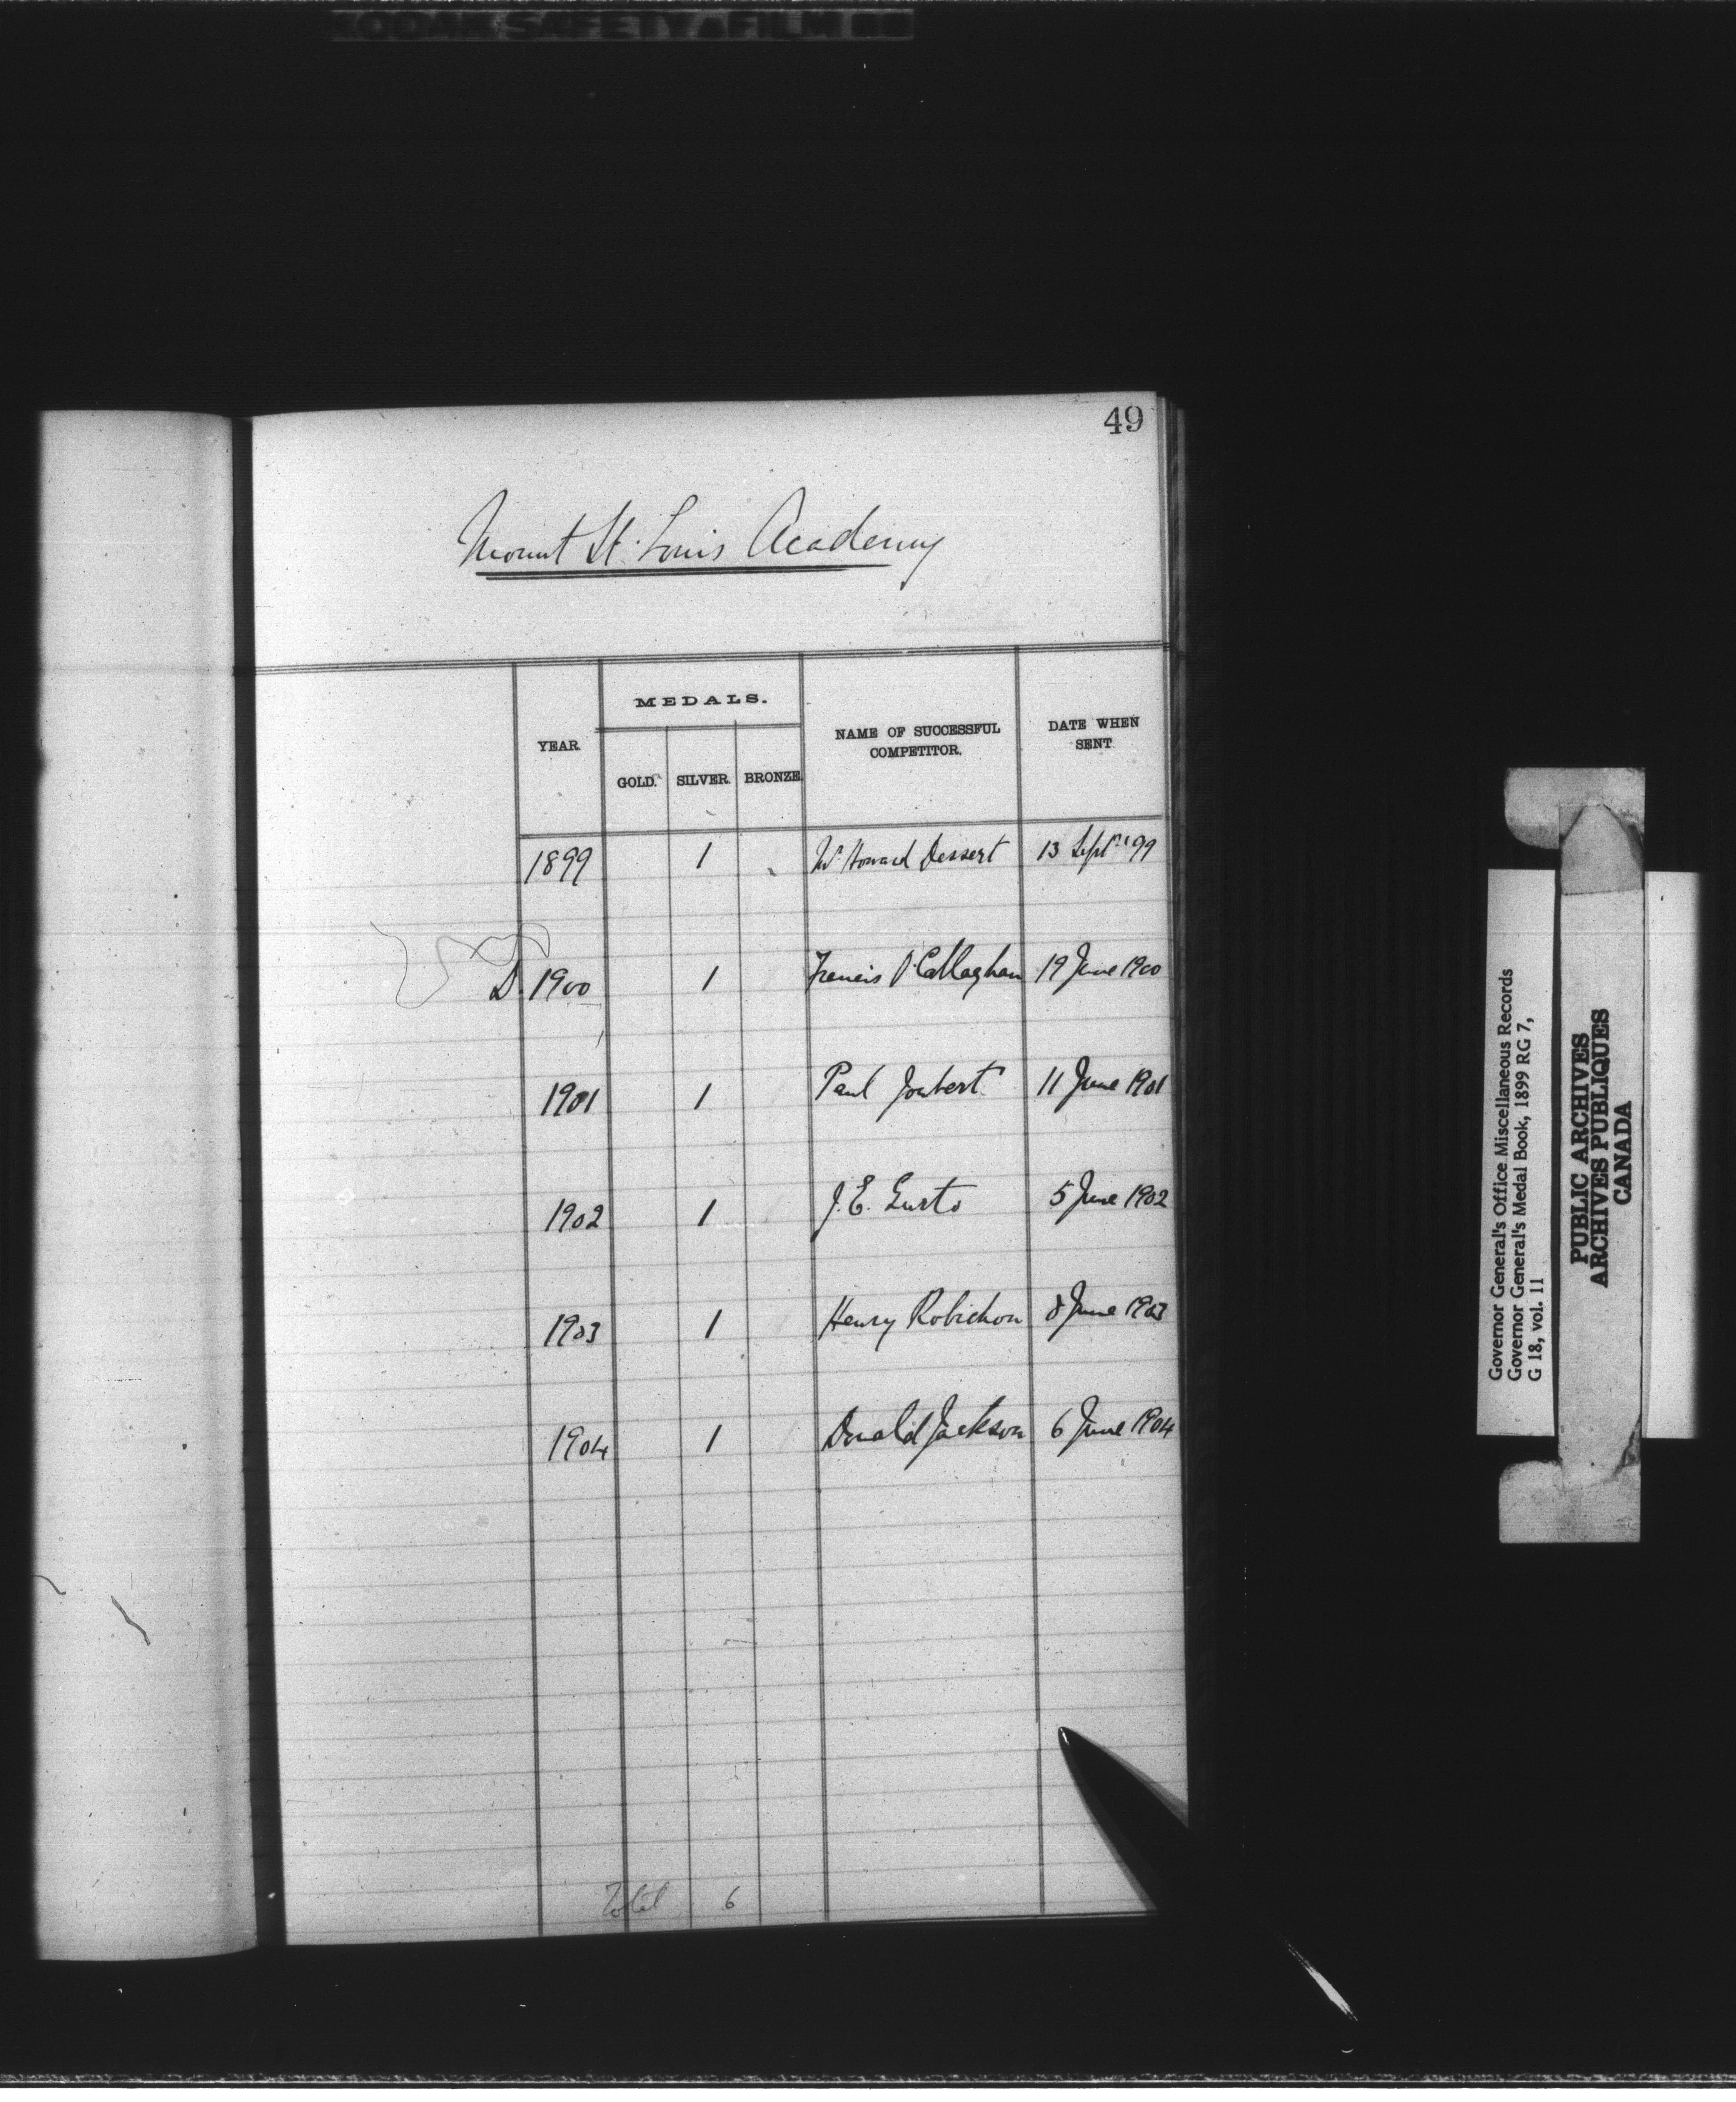 KODAK SAFETY FILM
49
Mount St. Louis Academy
YEAR
MEDALS.
GOLD. SILVER. BRONZE.
NAME OF SUCCESSFUL
COMPETITOR.
DATE WHEN
SENT
1899 1 Wm Howard Dessert 13 Septr '99
D. 1900 1 Francis O'Callaghan 19 June 1900
1901 1 Paul Joubert 11 June 1901
1902 1 J. E. 5 June 1902
1903 1 Henry Robichon 8 June 1903
1904 1 Donald Jackson 6 June 1904
Total 6
Governor General's Office Miscellaneous Records
Governor General's Medal Book, 1899 RG 7,
G 18, vol. 11
PUBLIC ARCHIVES
ARCHIVES PUBLIQUES
CANADA